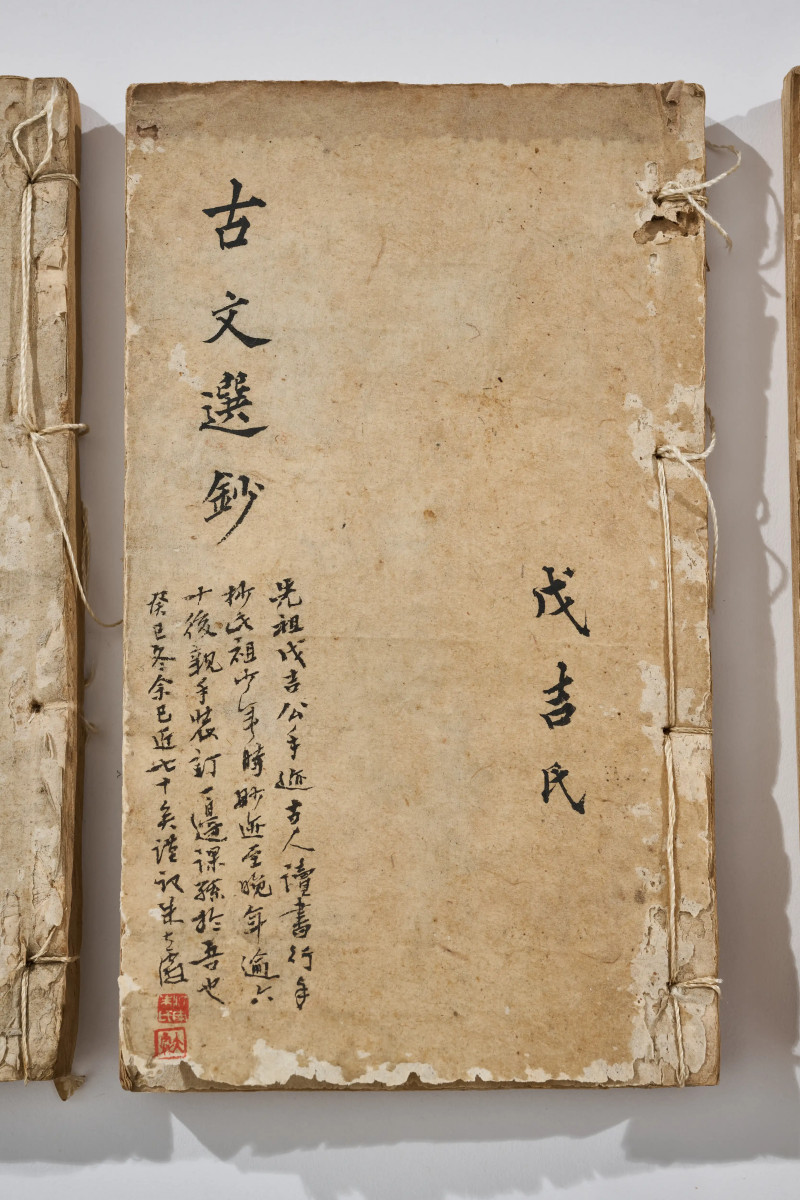 戊吉氏
古文選鈔
先祖戊吉公手迹古人讀書行手
抄此祖少年時鈔迹至晚年逾六
十後親手裝訂一邊課孫於吾也
癸巳冬余已近七十矣謹記朱